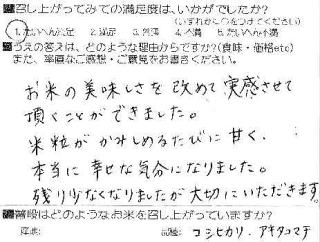 召し上がってみての満足度は、いかがでしたか?
(いずれかに○をつけてください)
1.たいへん満足 2.満足 3.普通 4.不満 5.たいへん不満
うえの答えは、どのような理由からですか?(食味・価格etc)
また、率直なご感想・ご意見をお書きください。
お米の美味しさを改めて実感させて
頂くことができました。
米粒がかみしめるたびに甘く、
本当に幸せな気分になりました。
残り少なくなりましたが大切にいただきます。
普段はどのようなお米を召し上がっていますか?
産地: 品種: コシヒカリ、アキタコマチ